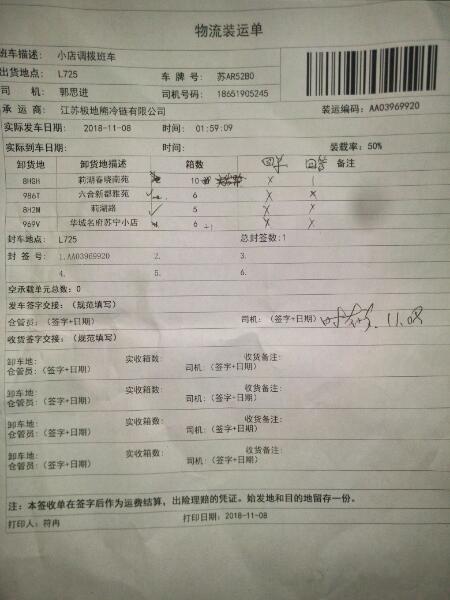 物流装运单
班车描述: 小店调拨班车
出货地点: L725 车牌号: 苏AR52B0
司机: 郭思进 司机号码: 18651905245
承运商: 江苏极地熊冷链有限公司 装运编码: AA03969920
实际发车日期: 2018-11-08 时间: 01:59:09
实际到车日期: 时间: 装载率: 50%
卸货地 卸货地描述 箱数 备注
8HGH 莉湖春晓南苑 10 X
986T 六合新都雅苑 6 X X
8H2M 莉湖路 ✓ 5 X X
969V 华城名府苏宁小店 6 +1 X X
封车地点: L725 总封签数:1
封签号: 1.AA03969920 2. 3.
4. 5. 6.
空承载单元总数: 0
发车签字交接: (规范填写)
仓管员: (签字+日期) 司机: (签字+日期) 11.08
收货签字交接: (规范填写)
卸车地: 实收箱数: 收货备注:
仓管员: (签字+日期) 司机: (签字+日期)
卸车地: 实收箱数: 收货备注:
仓管员: (签字+日期) 司机: (签字+日期)
卸车地: 实收箱数: 收货备注:
仓管员: (签字+日期) 司机: (签字+日期)
卸车地: 实收箱数: 收货备注:
仓管员: (签字+日期) 司机: (签字+日期)
注: 本签收单在签字后作为运费结算, 出险理赔的凭证。始发地和目的地留存一份。
打印人: 符冉 打印日期: 2018-11-08